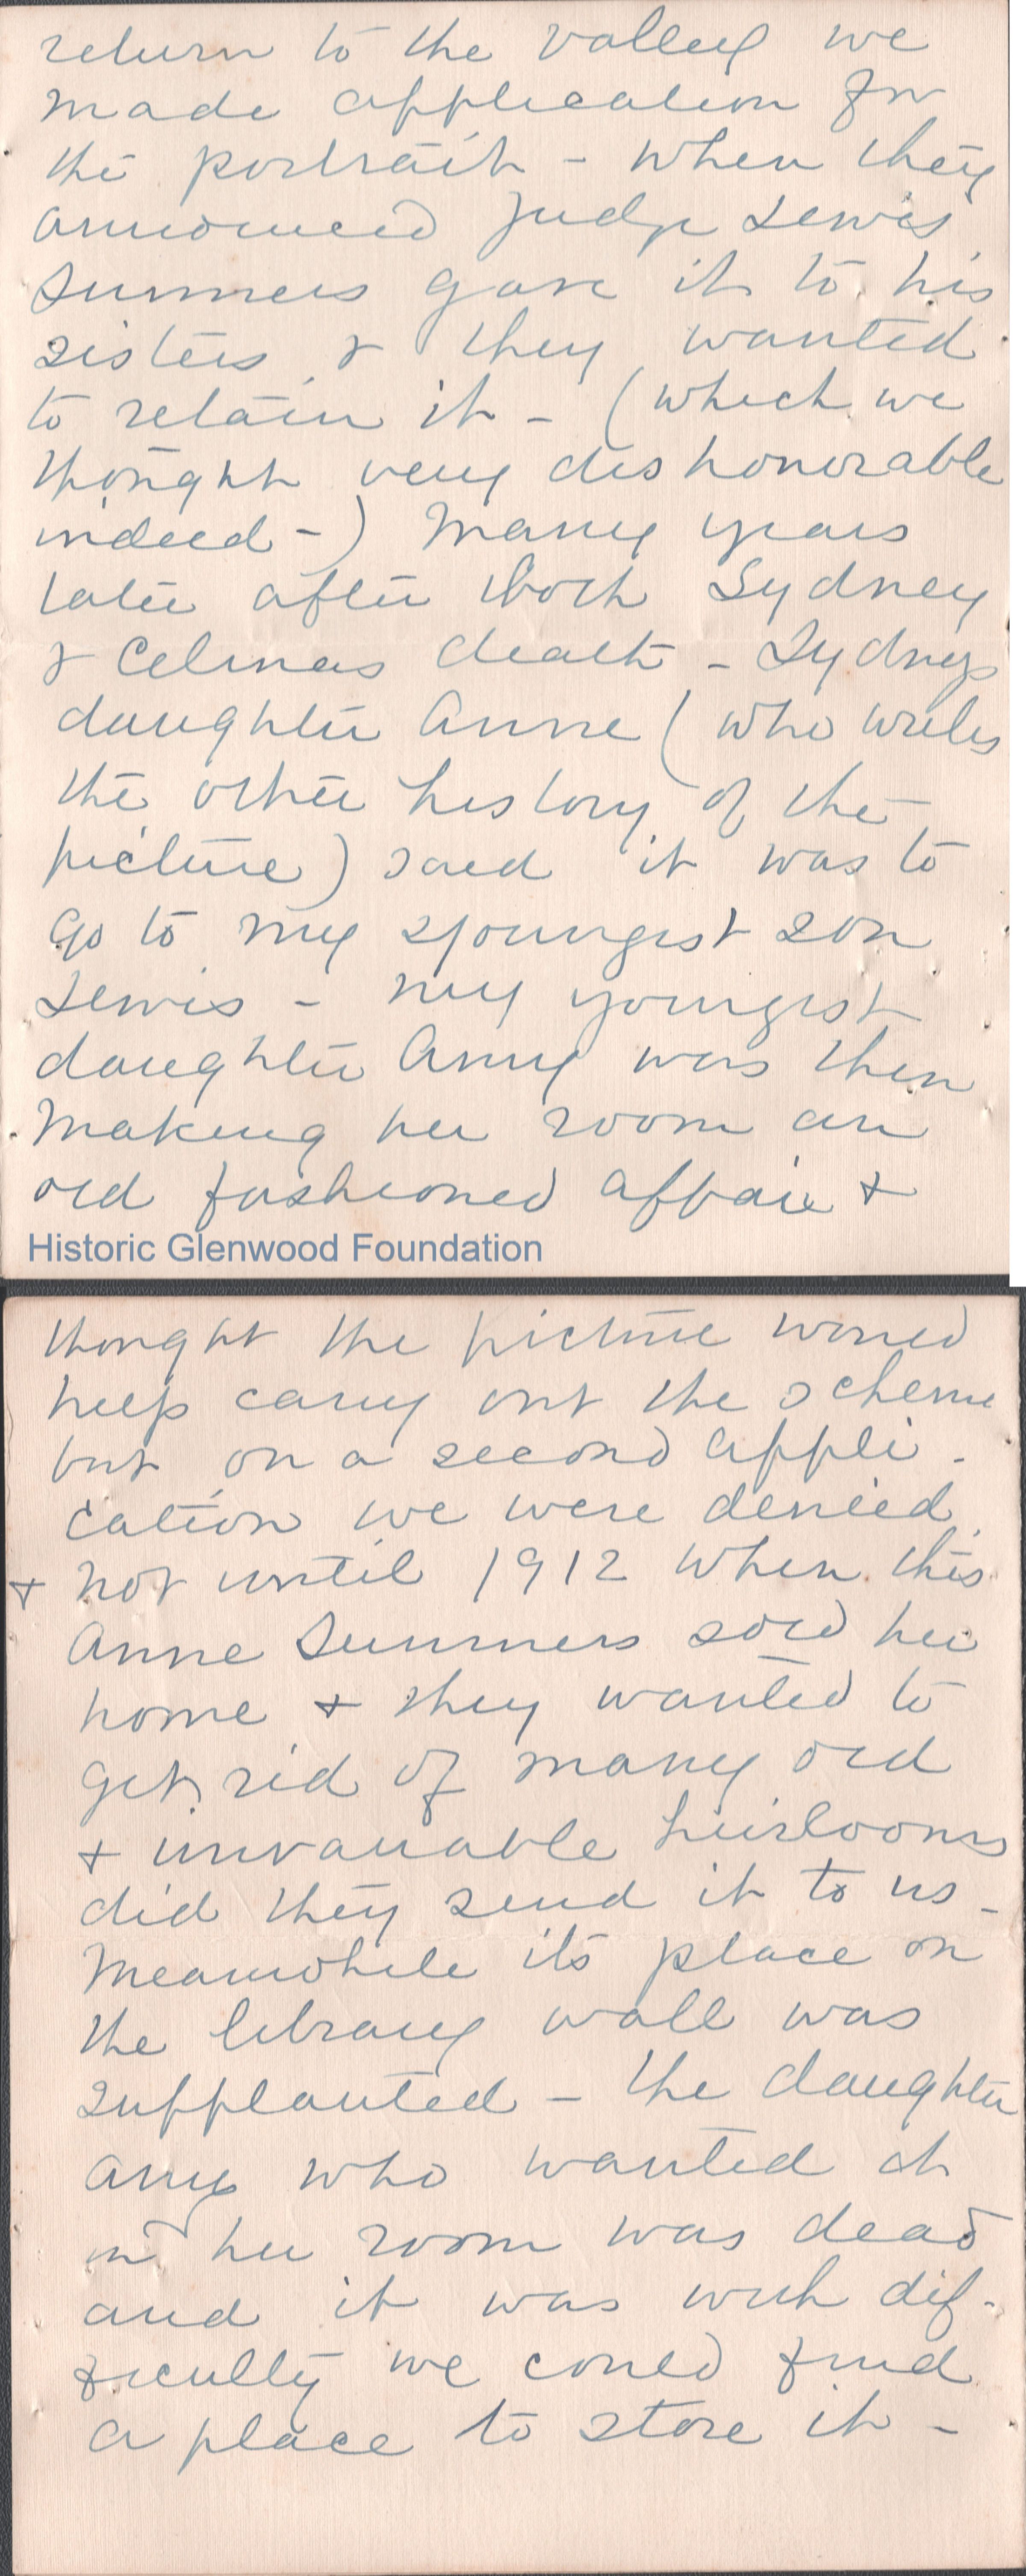 return to the valley we
made application for
the portrait - when they
announced Judge Lewis
Summers gave it to his
sisters & they wanted
to retain it - (which we
thought very dishonorable
indeed -) Many years
later after both Sydney
& Celinas death - Sydneys
daughter Anne (who writes
the other history of the
picture) said it was to
go to my youngest son
Lewis - my youngest
daughter Amy was then
making her room an
old fashioned affair &
Historic Glenwood Foundation
thought the picture would
help carry out the scheme
but on a second appli-
cation we were denied
& not until 1912 when this
Anne Summers sold her
home & they wanted to
get rid of many old
& unvaluable heirlooms
did they send it to us -
Meanwhile its place on
the library wall was
supplanted - the daughter
Amy who wanted it
in her room was dead
and it was with dif-
ficulty we could find
a place to store it -